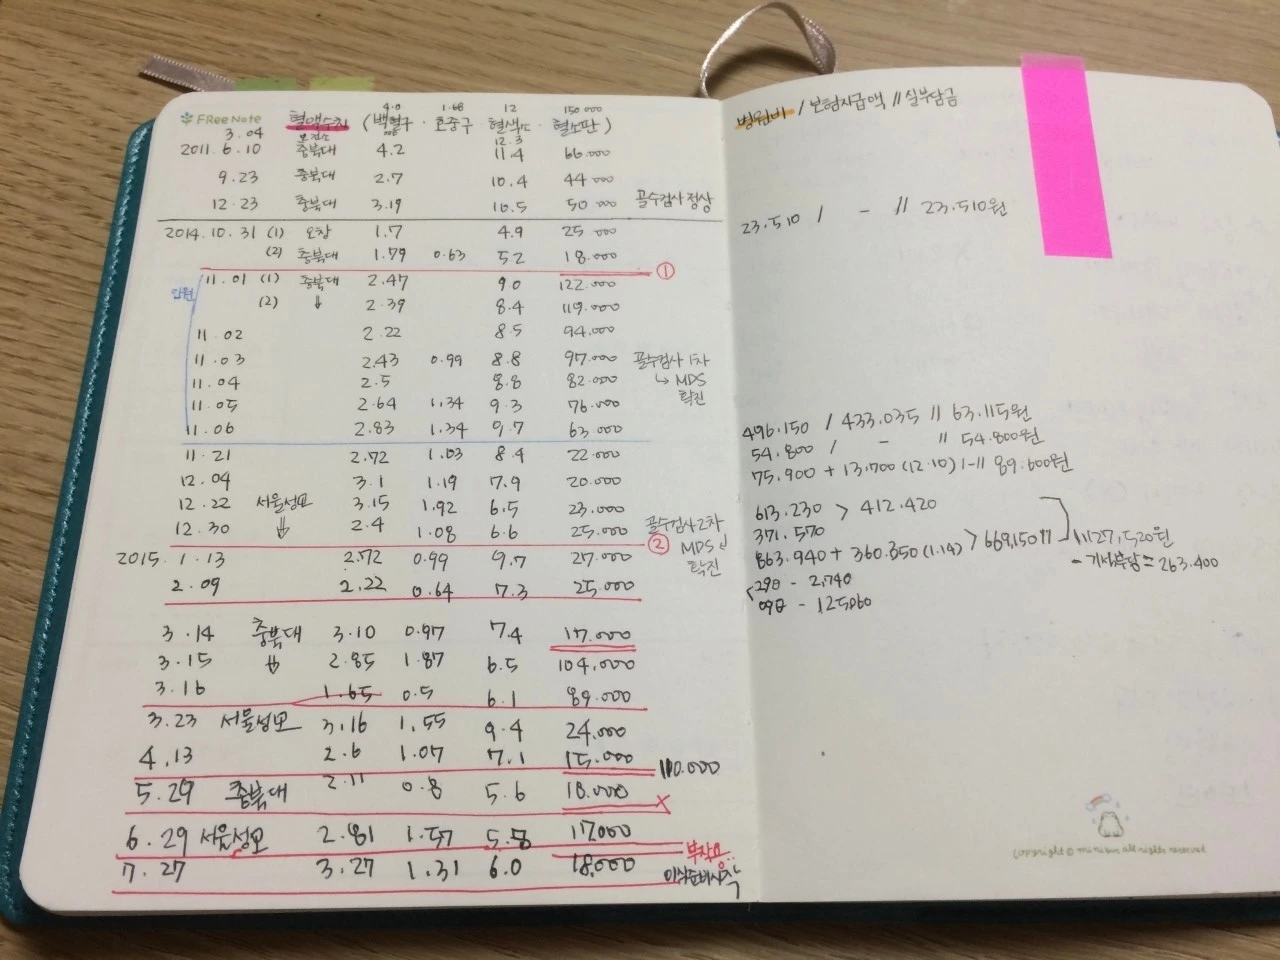 FReeNote
4.0 1.68 12 150.000
혈액수치 (백혈구 · 호중구 · 혈색소 · 혈소판)
3.04 보건소 12.3
2011.6.10 충북대 4.2 11.4 66.000
9.23 충북대 2.7 10.4 44.000
12.23 충북대 3.19 10.5 50.000 골수검사 정상
2014.10.31 (1) 오창 1.7 4.9 25.000
(2) 충북대 1.79 0.63 5.2 18.000
①
11.01 (1) 충북대 2.47 9.0 122.000
입원
(2) ↓ 2.39 8.4 119.000
11.02 2.22 8.5 94.000
11.03 2.43 0.99 8.8 97.000 골수검사 1차
11.04 2.5 8.8 82.000 ↳ MDS
11.05 2.64 1.34 9.3 76.000 확진
11.06 2.83 1.34 9.7 63.000
11.21 2.72 1.03 8.4 22.000
12.04 3.1 1.19 7.9 20.000
12.22 서울성모 3.15 1.92 6.5 23.000
12.30 ↓ 2.4 1.08 6.6 25.000 골수검사 2차
② MDS
확진
2015. 1.13 2.72 0.99 9.7 27.000
2.09 2.22 0.64 7.3 25.000
3.14 충북대 3.10 0.97 7.4 17.000
3.15 ↓ 2.85 1.87 6.5 104.000
3.16 1.65 0.5 6.1 89.000
3.23 서울성모 3.16 1.55 9.4 24.000
4.13 2.6 1.07 7.1 15.000
110.000
5.29 충북대 2.11 0.8 5.6 18.000
X
6.29 서울성모 2.81 1.57 5.8 17000
부작용..
7.27 3.27 1.31 6.0 18,000 이식준비시작
병원비 / 보험지급액 // 실부담금
23.510 / - // 23.510원
496.150 / 433.035 // 63.115원
54.800 / - // 54.800원
75.900 + 13.700 (12.10) / - // 89.600원
613.230 > 412.420
371.570
863.940 + 360.850 (1.14) > 669,150
1127,520원
263.400
29일 - 2,740
09일 - 125060
copyright © minibus all rights reserved